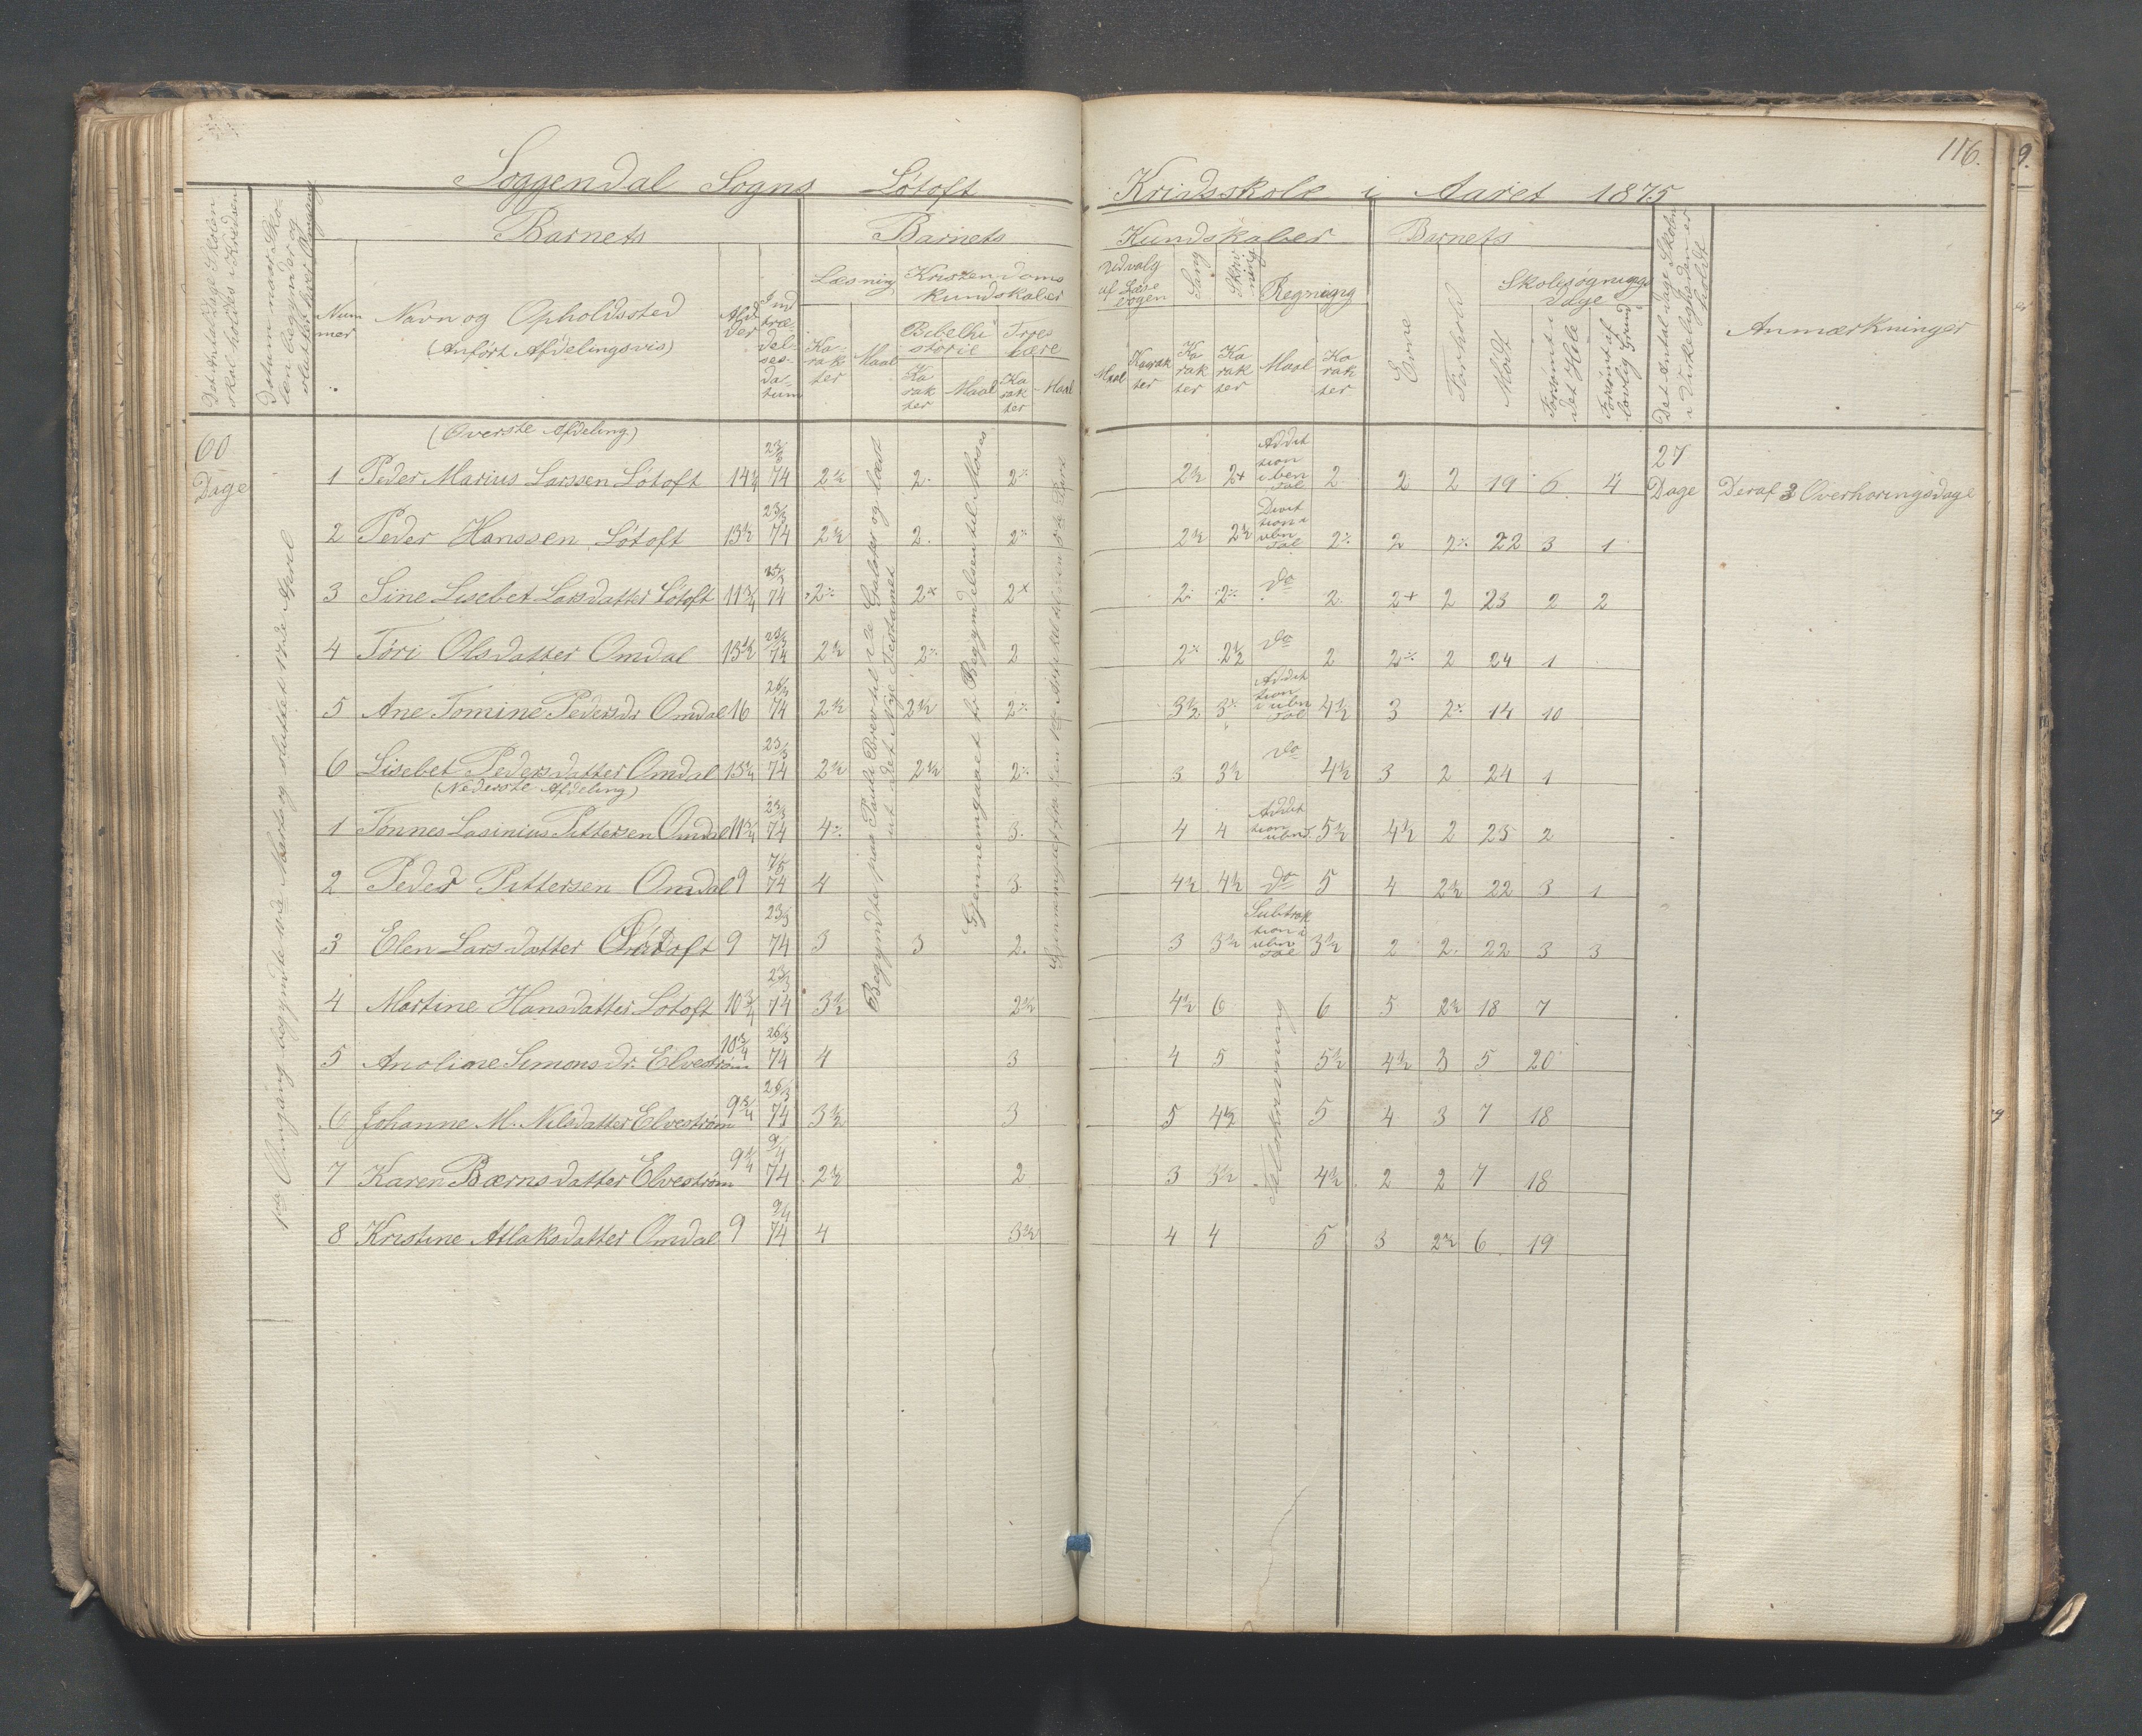 116.
Soggendal Sogns Løtoft Kridsskole i Aaret 1875
Det Antal Dage Skolen skal holdes i Kredsen
Datum naar Skolen begynder og slutter hver Omgang
Barnets
Nummer
Navn og Opholdssted
(Anført Afdelingsvis)
Alder
Indtrædelsesdatum
Barnets Kundskaber
Læsning
Karakter
Maal
Kristendoms kundskaber
Bibelhistorie
Karakter
Maal
Troeslære
Karakter
Maal
Udvalg af Læsebogen
Maal
Karakter
Sang
Karakter
Skrivning
Karakter
Regning
Maal
Karakter
Barnets
Evne
Forhold
Skolesøgningsdage
Mødt
Forsømt i det Hele
Forsømt af lovlig Grund
Det Antal dage Skolen i Virkeligheden er holdt
Anmærkninger
60 Dage
1ste Omgang begyndte Marts og sluttet 17de April
(Overste Afdeling)
1 Peder Marius Larssen Løtoft 14½ 23/3 74 2½ 2 2% 2½ 2+ Addition i ben Tal 2 2 2 19 6 4 27 Dage Deraf 3 Overhøringsdage
2 Peder Hanssen Løtoft 13½ 23/3 74 2½ 2. 2% 2½ 2½ Divition i ubn Tal 2% 2 2% 22 3 1
3 Sine Lisebet Larsdatter Løtoft 11¾ 23/3 74 2% 2x 2x 2 2% do 2 2+ 2 23 2 2
4 Tori Olsdatter Omdal 13½ 23/3 74 2½ 2% 2 2% 2½ do 2 2% 2 24 1
5 Ane Tomine Pedersdr Omdal 16 26/3 74 2½ 2½ 2% 3½ 3% Addition i ubn Tal 4½ 3 2% 14 10
6 Lisebet Pedersdatter Omdal 13½ 23/3 74 2½ 2½ 2% 3 3½ do 4½ 3 2 24 1
(Nederste Afdeling)
1 Tonnes Lasinius Pittersen Omdal 11¾ 23/3 74 4% 3. 4 4 Addition ubn T. 5½ 4½ 2 23 2
2 Peder Pittersen Omdal 9 7/5 74 4 3 4½ 4½ do 5 4 2½ 22 3 1
3 Elen Larsdatter Løtoft 9 23/3 74 3 3 2. 3 3½ Subtraktion i ubn Tal 3½ 2 2 22 3 3
4 Martine Hansdatter Løtoft 10¾ 23/3 74 3½ 2½ 4½ 6 6 5 2½ 18 7
5 Anoline Simonsdr. Elvestrøm 10¾ 26/3 74 4 3 4 5 5½ 4½ 3 5 20
6 Johanne M. Nilsdatter Elvestrøm 9¾ 26/3 74 3½ 3 5 4½ 5 4 3 7 18
7 Karen Bærnsdatter Elvestrøm 9¼ 9/4 74 2½ 2 3 3½ 4½ 2 2 7 18
8 Kristine Atlaksdatter Omdal 9 9/4 74 4 3½ 4 4 5 3 2½ 6 19
Begyndte paa Pauli Brev til de Galater og læst ut det Nye Testamet
Gjennemgaaet fr Begyndelsen til Moses
Talskrivning